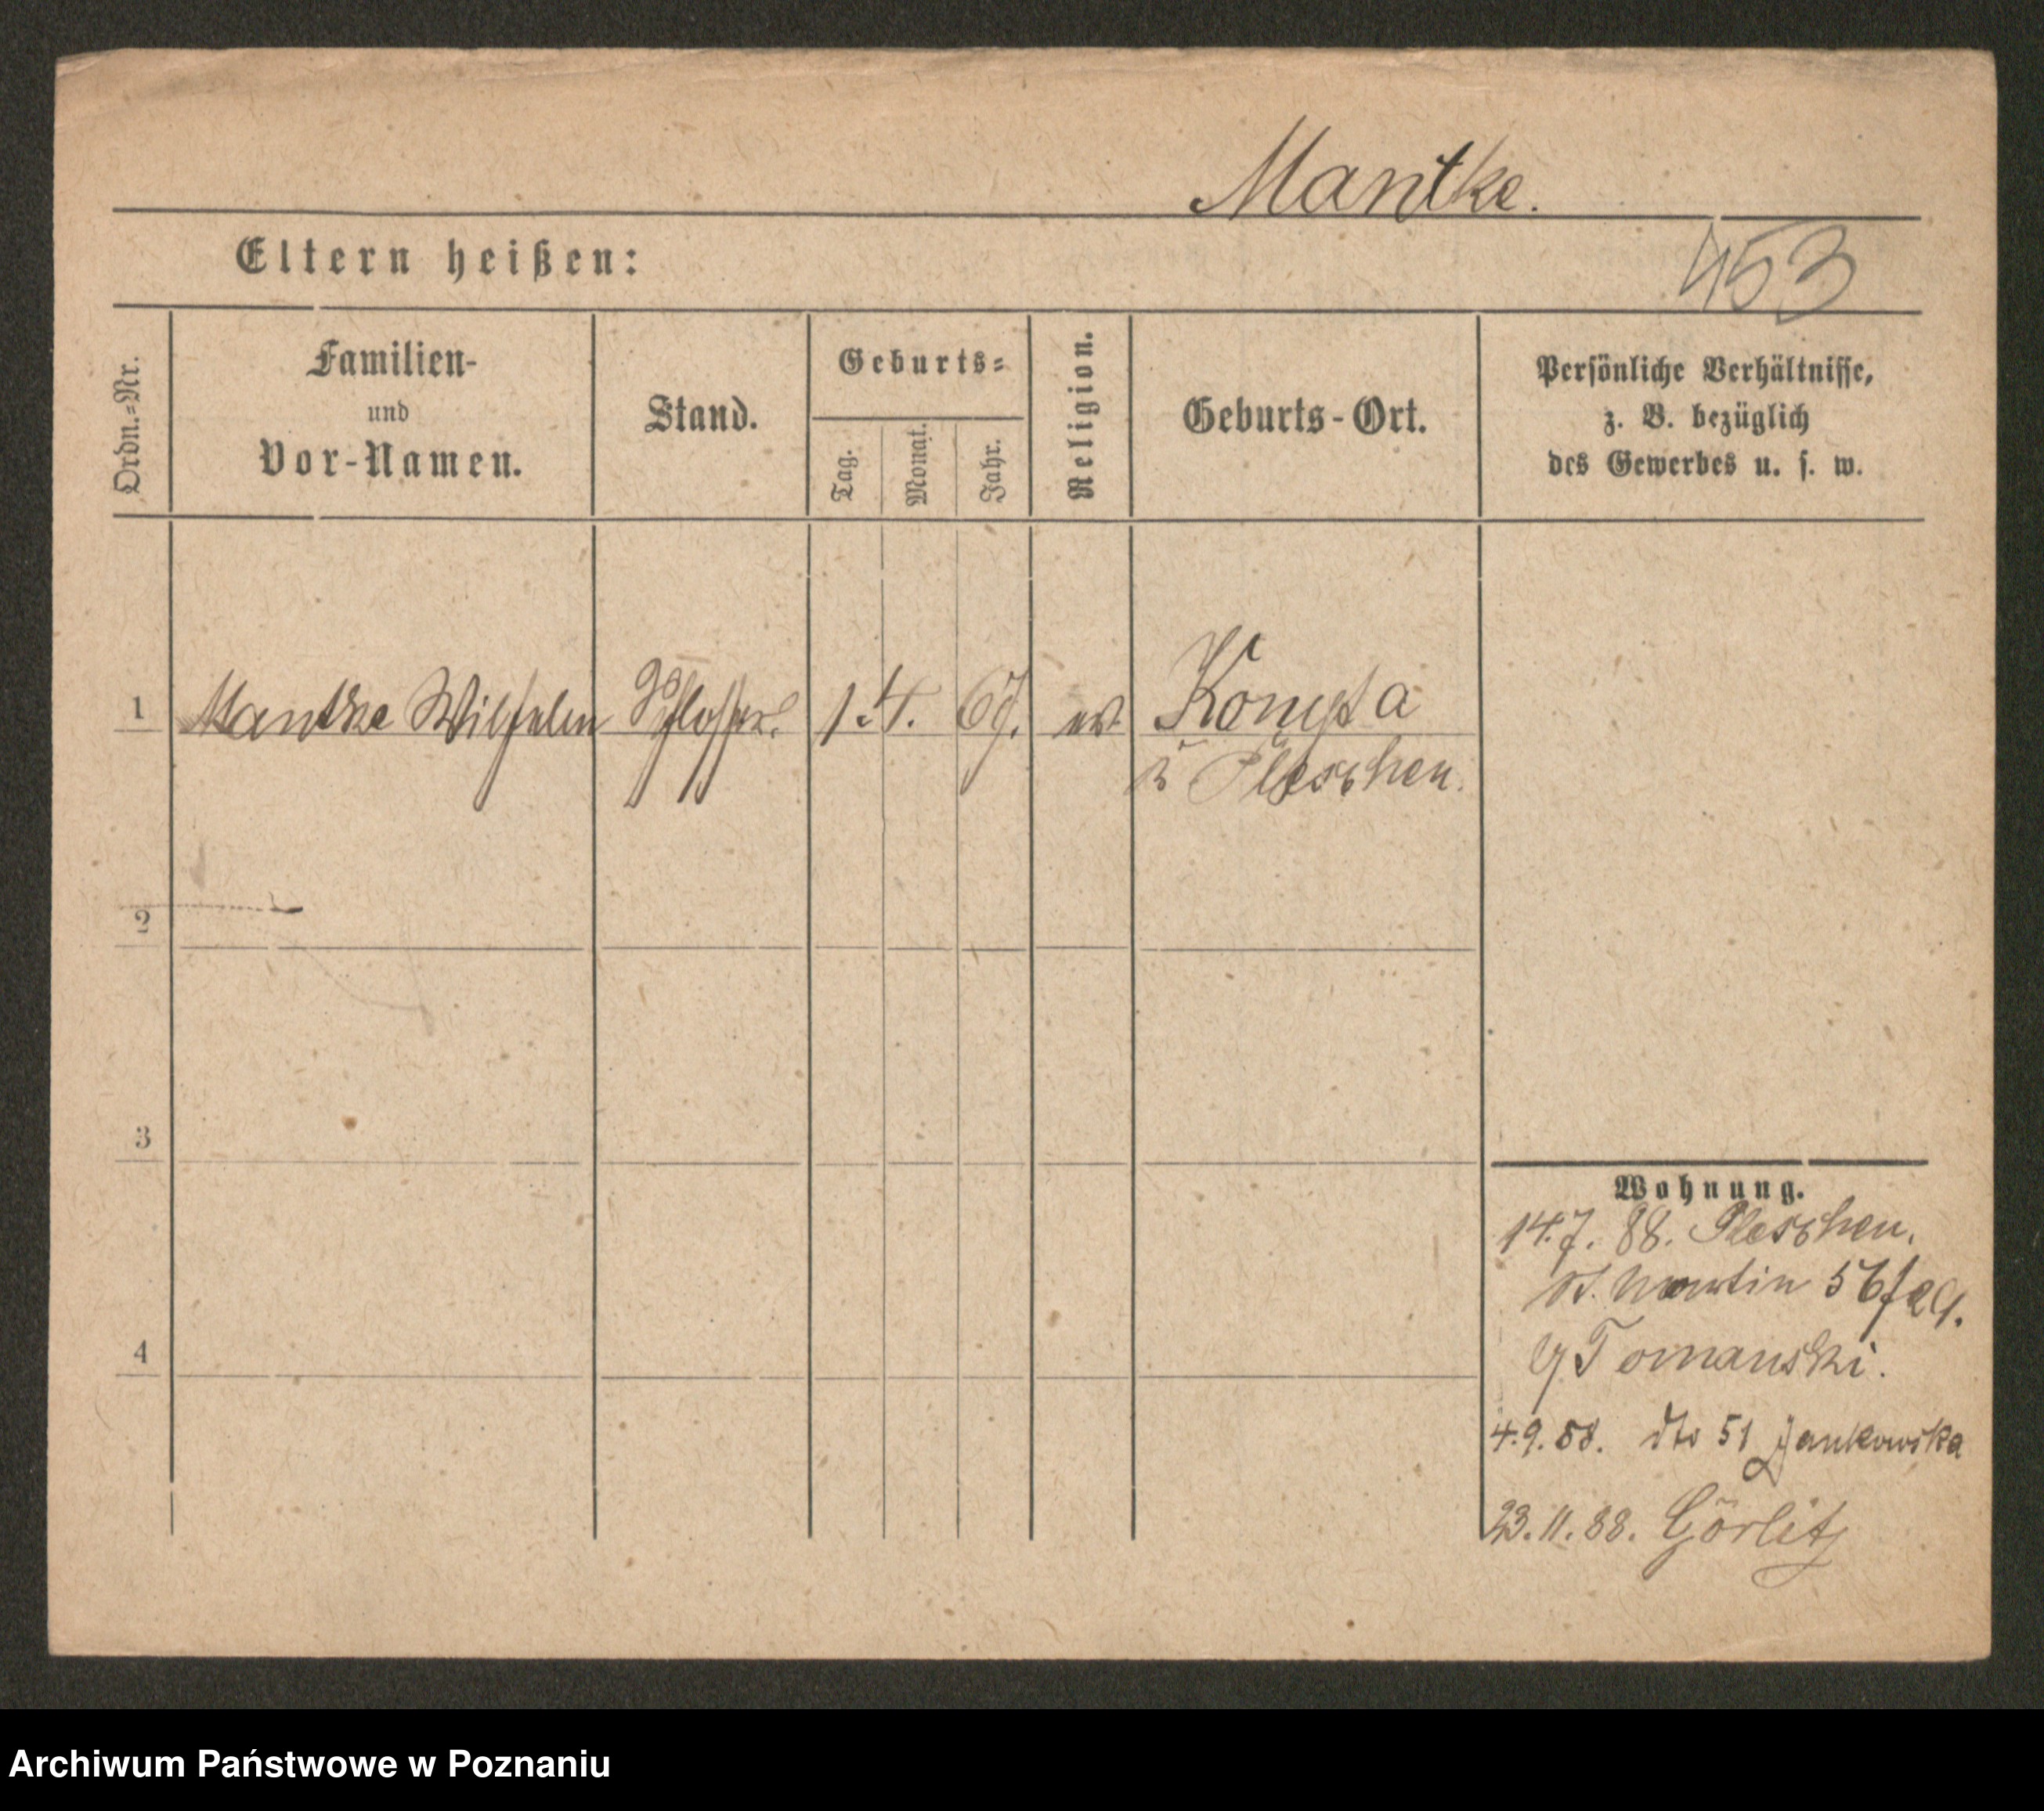 Mantke.
Eltern heißen:
453
Ordn.-Nr.
Familien-
und
Vor-Namen.
Stand.
Geburts-
Tag.
Monat.
Jahr.
Religion.
Geburts-Ort.
Persönliche Verhältnisse,
z. B. bezüglich
des Gewerbes u. s. w.
1 Mantke Wilhelm Schlosser. 1. 4. 67. ev
Pleschen.
2
3
4
Wohnung.
14.7. 88. Pleschen.
St. Martin 56
Tomanski.
4.9.88. dto 51 Jankowska
23.11.88. Görlitz
Archiwum Państwowe w Poznaniu